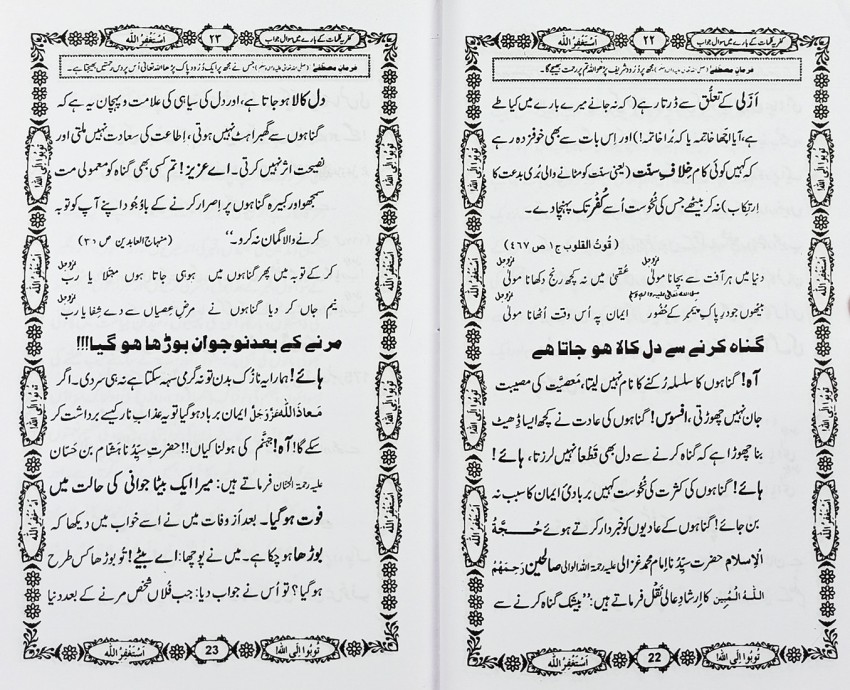 کفریہ کلمات کے بارے میں سوال جواب
٢٢
اَسْتَغْفِرُ اللّٰه
فرمانِ مصطفٰے (صلی اللہ تعالیٰ علیہ واٰلہ وسلم) مجھ پر دُرُود شریف پڑھو اللہ تم پر رحمت بھیجے گا۔
اَزَلی کے تعلُّق سے ڈرتا رہے (کہ نہ جانے میرے بارے میں کیا طے
ہے، آیا اچھا خاتِمہ یا کہ بُرا خاتمہ!) اور اِس بات سے بھی خوفزدہ رہے
کہ کہیں کوئی کام خِلافِ سنّت (یعنی سنّت کو مٹانے والی بُری بدعت کا
اِرتِکاب) نہ کر بیٹھے جس کی نُحُوست اُسے کُفْر تک پہنچا دے۔
(قُوتُ القلوب ج١ ص ٤٦٧)
دنیا میں ہر آفت سے بچانا مولیٰ عزوجل عُقبیٰ میں نہ کچھ رنج دکھانا مولیٰ عزوجل
بیٹھوں جو درِ پاکِ پیمبر کے حُضُور صلی اللہ تعالیٰ علیہ واٰلہ وسلم ایمان پہ اُس وقت اُٹھانا مولیٰ عزوجل
گناہ کرنے سے دل کالا ہو جاتا ہے
آہ! گناہوں کا سلسلہ رُکنے کا نام نہیں لیتا، مَعصِیَّت کی مصیبت
جان نہیں چھوڑتی، افسوس! گناہوں کی عادت نے کچھ ایسا ڈِھیٹ
بنا چھوڑا ہے کہ گناہ کرنے سے دل بھی قَطْعاً نہیں لرزتا، ہائے!
ہائے! گناہوں کی کثرت کی نُحُوست کہیں بربادیٔ ایمان کا سبب نہ
بن جائے! گناہوں کے عادیوں کو خبردار کرتے ہوئے حُجَّةُ
الْاِسلام حضرتِ سیِّدُنا امام محمد غزالی علیہ رحمۃ اللہ الوالی صالحین رَحِمَهُمُ
اللّٰهُ الْمُبِین کا اِرشادِ عالی نَقْل فرماتے ہیں: ’’بیشک گناہ کرنے سے
اَسْتَغْفِرُ اللّٰه
22
تُوبُوا اِلَی اللّٰه!
کفریہ کلمات کے بارے میں سوال جواب
٢٣
اَسْتَغْفِرُ اللّٰه
فرمانِ مصطفٰے (صلی اللہ تعالیٰ علیہ واٰلہ وسلم) جس نے مجھ پر ایک دُرُود پاک پڑھا اللہ تعالیٰ اُس پر دس رحمتیں بھیجتا ہے۔
دل کالا ہو جاتا ہے، اور دل کی سیاہی کی علامت و پہچان یہ ہے کہ
گناہوں سے گھبراہٹ نہیں ہوتی، اِطاعت کی سعادت نہیں ملتی اور
نصیحت اثر نہیں کرتی۔ اے عزیز! تم کسی بھی گناہ کو معمولی مت
سمجھو اور کبیرہ گناہوں پر اِصرار کرنے کے باوُجُود اپنے آپ کو توبہ
کرنے والا گمان نہ کرو۔‘‘ (منہاج العابدین ص ٣٥)
کر کے توبہ میں پھر گناہوں میں ہو ہی جاتا ہوں مبتَلا یا رب عزوجل
نیم جاں کر دیا گناہوں نے مرضِ عِصیاں سے دے شِفا یا رب عزوجل
مرنے کے بعد نوجوان بوڑھا ہو گیا!!!
ہائے! ہمارا یہ نازُک بدن تو نہ گرمی سہہ سکتا ہے نہ ہی سردی۔ اگر
مَعاذَ اللّٰہ عَزَّوَجَلَّ ایمان برباد ہو گیا تو یہ عذابِ نار کیسے برداشت کر
سکے گا! آہ! جہنَّم کی ہولناکیاں!! حضرتِ سیِّدُنا ہِشَّام بن حَسّان
علیہ رحمۃ الحنّان فرماتے ہیں: میرا ایک بیٹا جوانی کی حالت میں
فوت ہو گیا۔ بعد از وفات میں نے اسے خواب میں دیکھا کہ
بوڑھا ہو چکا ہے۔ میں نے پوچھا: اے بیٹے! تُو بوڑھا کس طرح
ہو گیا؟ تو اُس نے جواب دیا: جب فُلاں شخص مرنے کے بعد دنیا
اَسْتَغْفِرُ اللّٰه
23
تُوبُوا اِلَی اللّٰه!